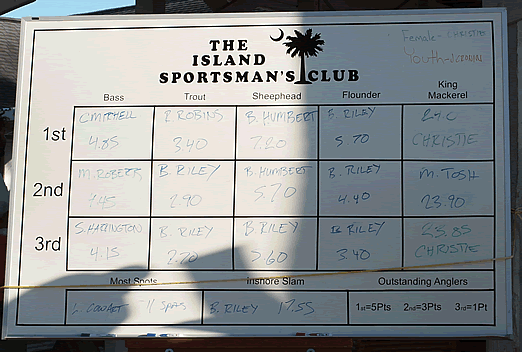 Female - CHRISTIE
Youth -
THE
ISLAND
SPORTSMAN'S CLUB
Bass Trout Sheephead Flounder King Mackerel
1st C. MITCHELL R. ROBINS B. HUMBERT B. RILEY
4.85 3.40 7.20 5.70 CHRISTIE
2nd M. ROBERTS B. RILEY B. HUMBERT B. RILEY M. TOSH
2.90 5.70 4.40 23.90
3rd S. HARRINGTON B. RILEY B. RILEY B. RILEY 23.85
4.15 2.70 5.60 3.40 CHRISTIE
Most Spots Inshore Slam Outstanding Anglers
11 SPOTS B. RILEY 17.55 1st=5Pts 2nd=3Pts 3rd=1Pt